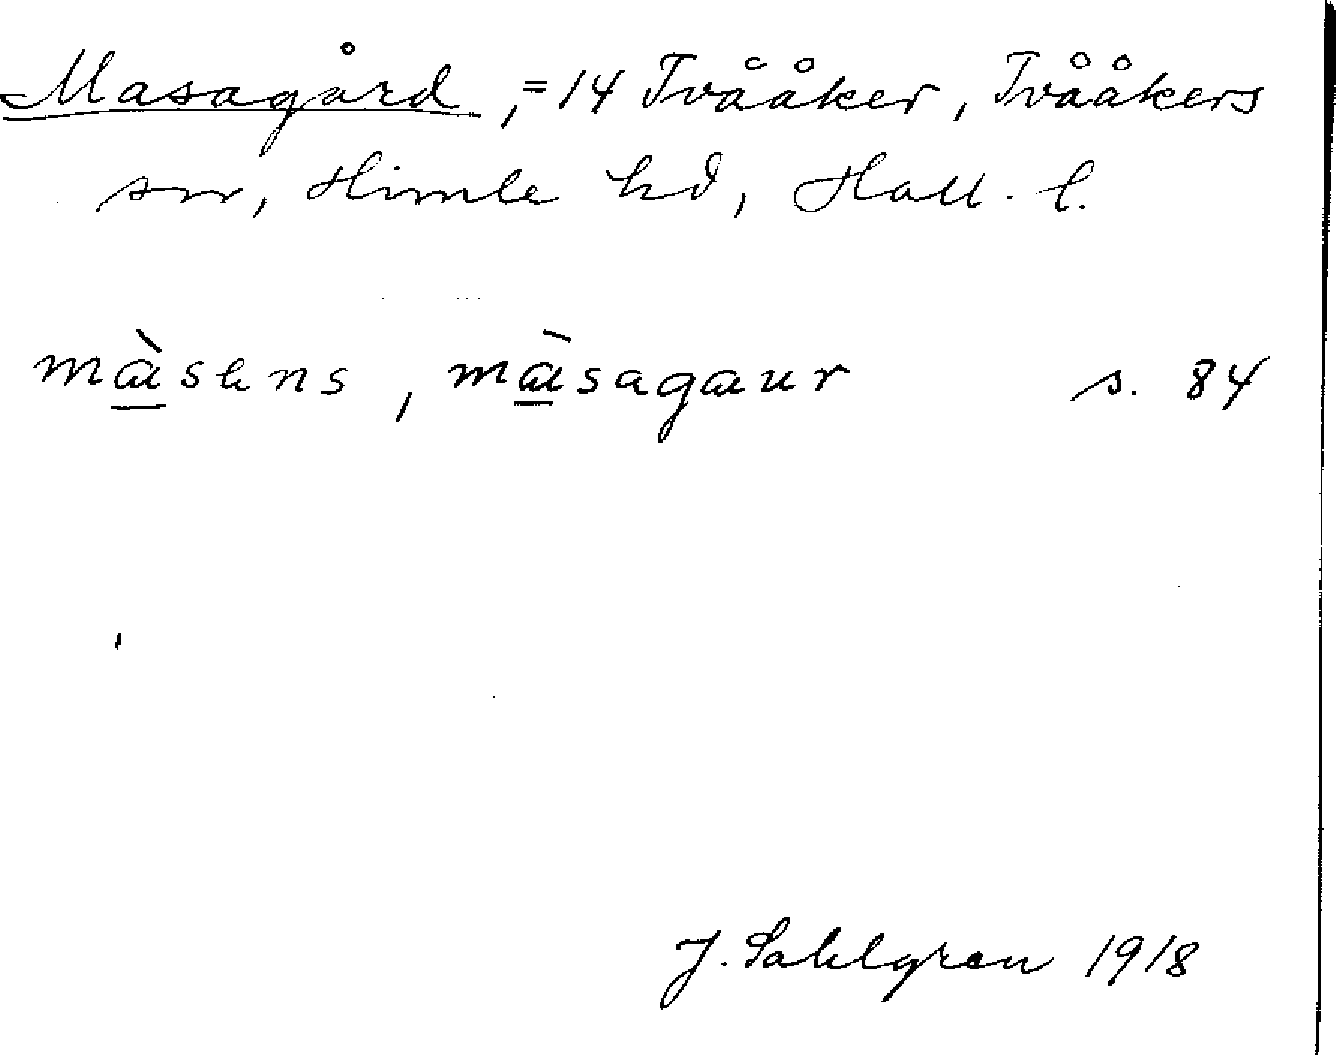 Masagård, = 14 Tvååker, Tvååkers
sn, Himle hd, Hall. l.
màsens, màsagaur s. 84
J. Sahlgren 1918